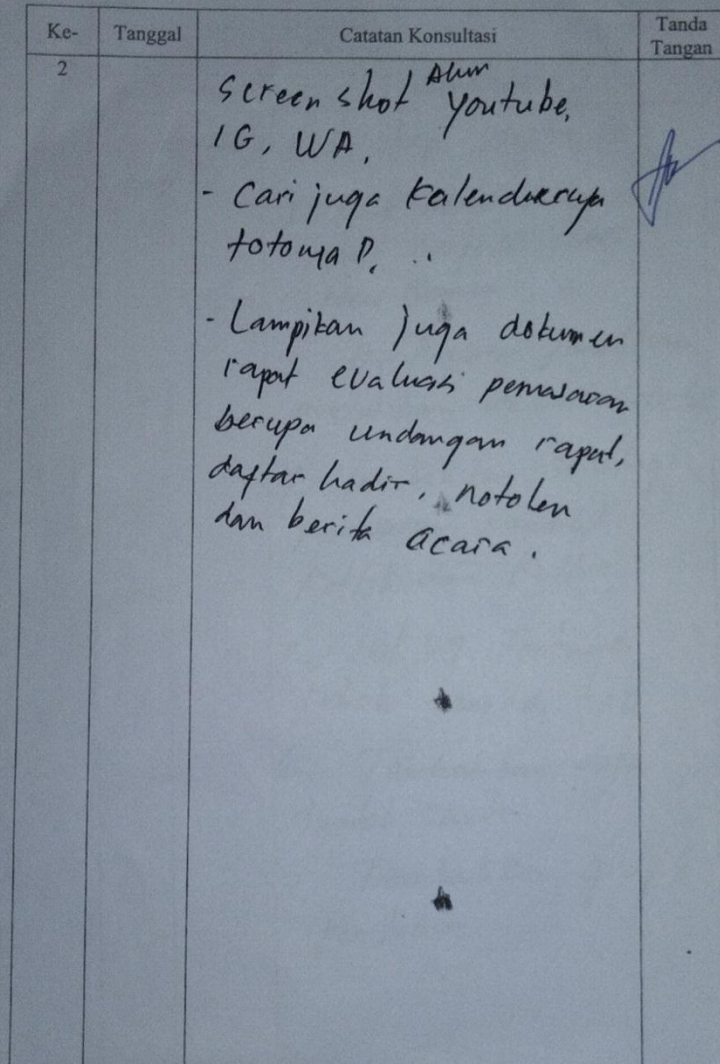 Ke-
Tanggal
Catatan Konsultasi
Tanda
Tangan
2
Screen shot Akun Youtube,
IG, WA,
- Cari juga
- Lampikan juga dokumen
rapat evaluasi pemasaran
berupa undangan rapat,
daftar hadir, notolen
dan berita acara.